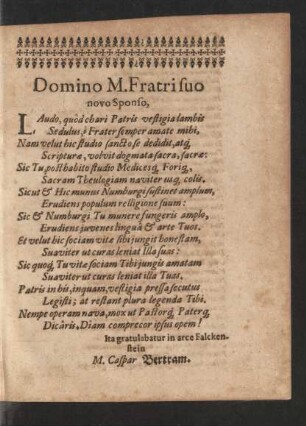 Domino M. Fratri suo
novo Sponso,
LAudo, quòd chari Patris vestigia lambis
Sedulus, ô Frater semper amate mihi,
Nam velut hic studio sancto se dedidit, atq́;
Scripturæ, volvit dogmata sacra, sacræ:
Sic Tu, post habito studio Medicesq́; Foriq́;
Sacram Theologiam naviter usq; colis.
Sicut & Hic munus Numburgi sustinet amplum,
Erudiens populum relligione suum:
Sic & Numburgi Tu munere fungeris amplo,
Erudiens juvenes linguâ & arte Tuos.
Et velut hic sociam vitæ sibi jungit honestam,
Suaviter ut curas leniat illa suas:
Sic quoq́; Tu vitæ sociam Tibi jungis amatam
Suaviter ut curas leniat illa Tuas.
Patris in his, inquam, vestigia pressa secutus
Legisti; at restant plura legenda Tibi.
Nempe operam nava, mox ut Pastorq́; Paterq́;
Dicâris, Diam comprecor ipsus opem!
Ita gratulabatur in arce Falcken-
stein
M. Caspar Bertram.